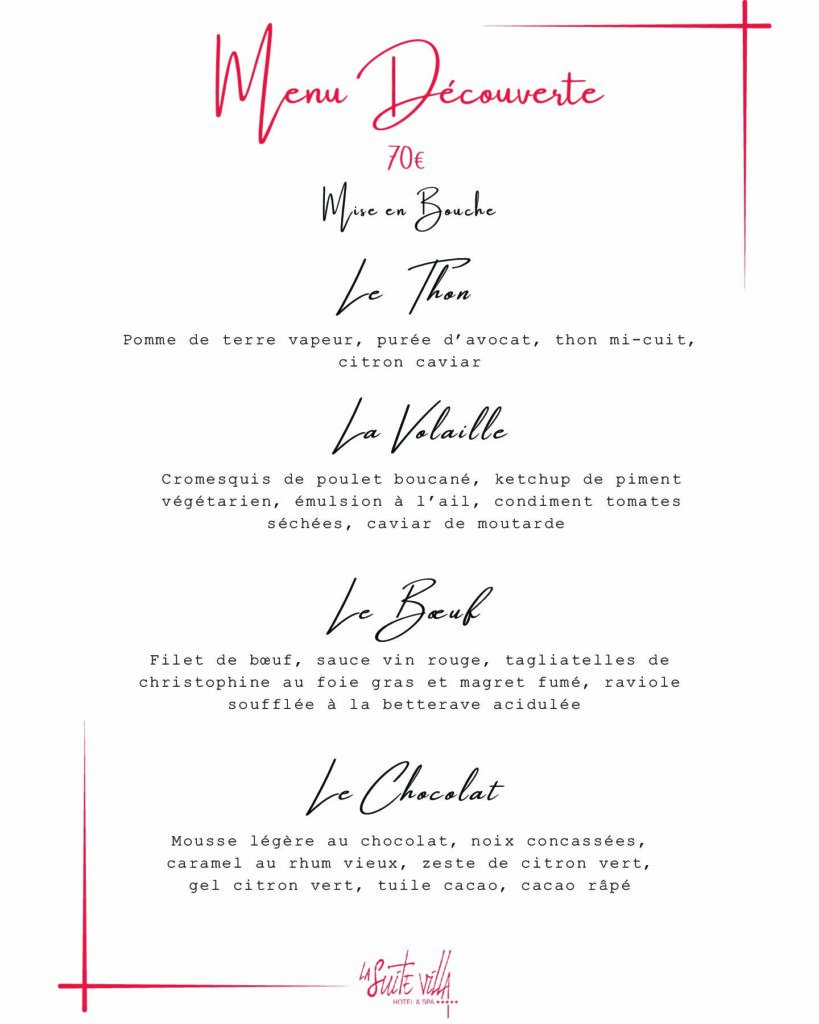 Menu Découverte
70€
Mise en Bouche
Le Thon
Pomme de terre vapeur, purée d’avocat, thon mi-cuit,
citron caviar
La Volaille
Cromesquis de poulet boucané, ketchup de piment
végétarien, émulsion à l’ail, condiment tomates
séchées, caviar de moutarde
Le Bœuf
Filet de bœuf, sauce vin rouge, tagliatelles de
christophine au foie gras et magret fumé, raviole
soufflée à la betterave acidulée
Le Chocolat
Mousse légère au chocolat, noix concassées,
caramel au rhum vieux, zeste de citron vert,
gel citron vert, tuile cacao, cacao râpé
LA SUITE VILLA
HOTEL & SPA ★★★★★